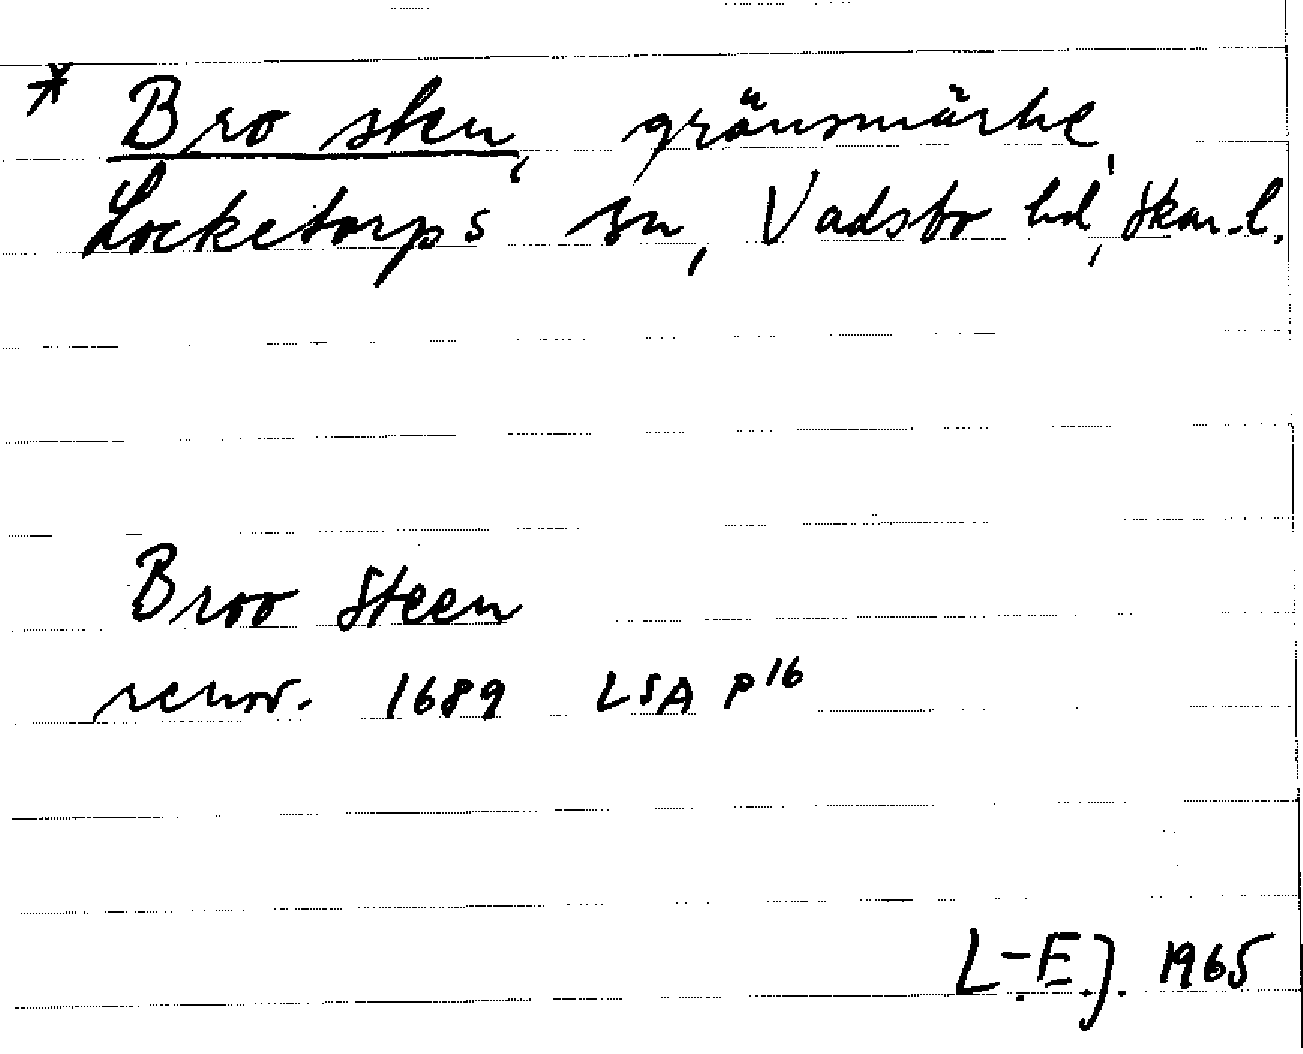 * Bro sten, gränsmärke,
Locketorps sn, Vadsbo hd, Skar.l.
Broo Steen
renov. 1689 LSA P16
L-E.J. 1965